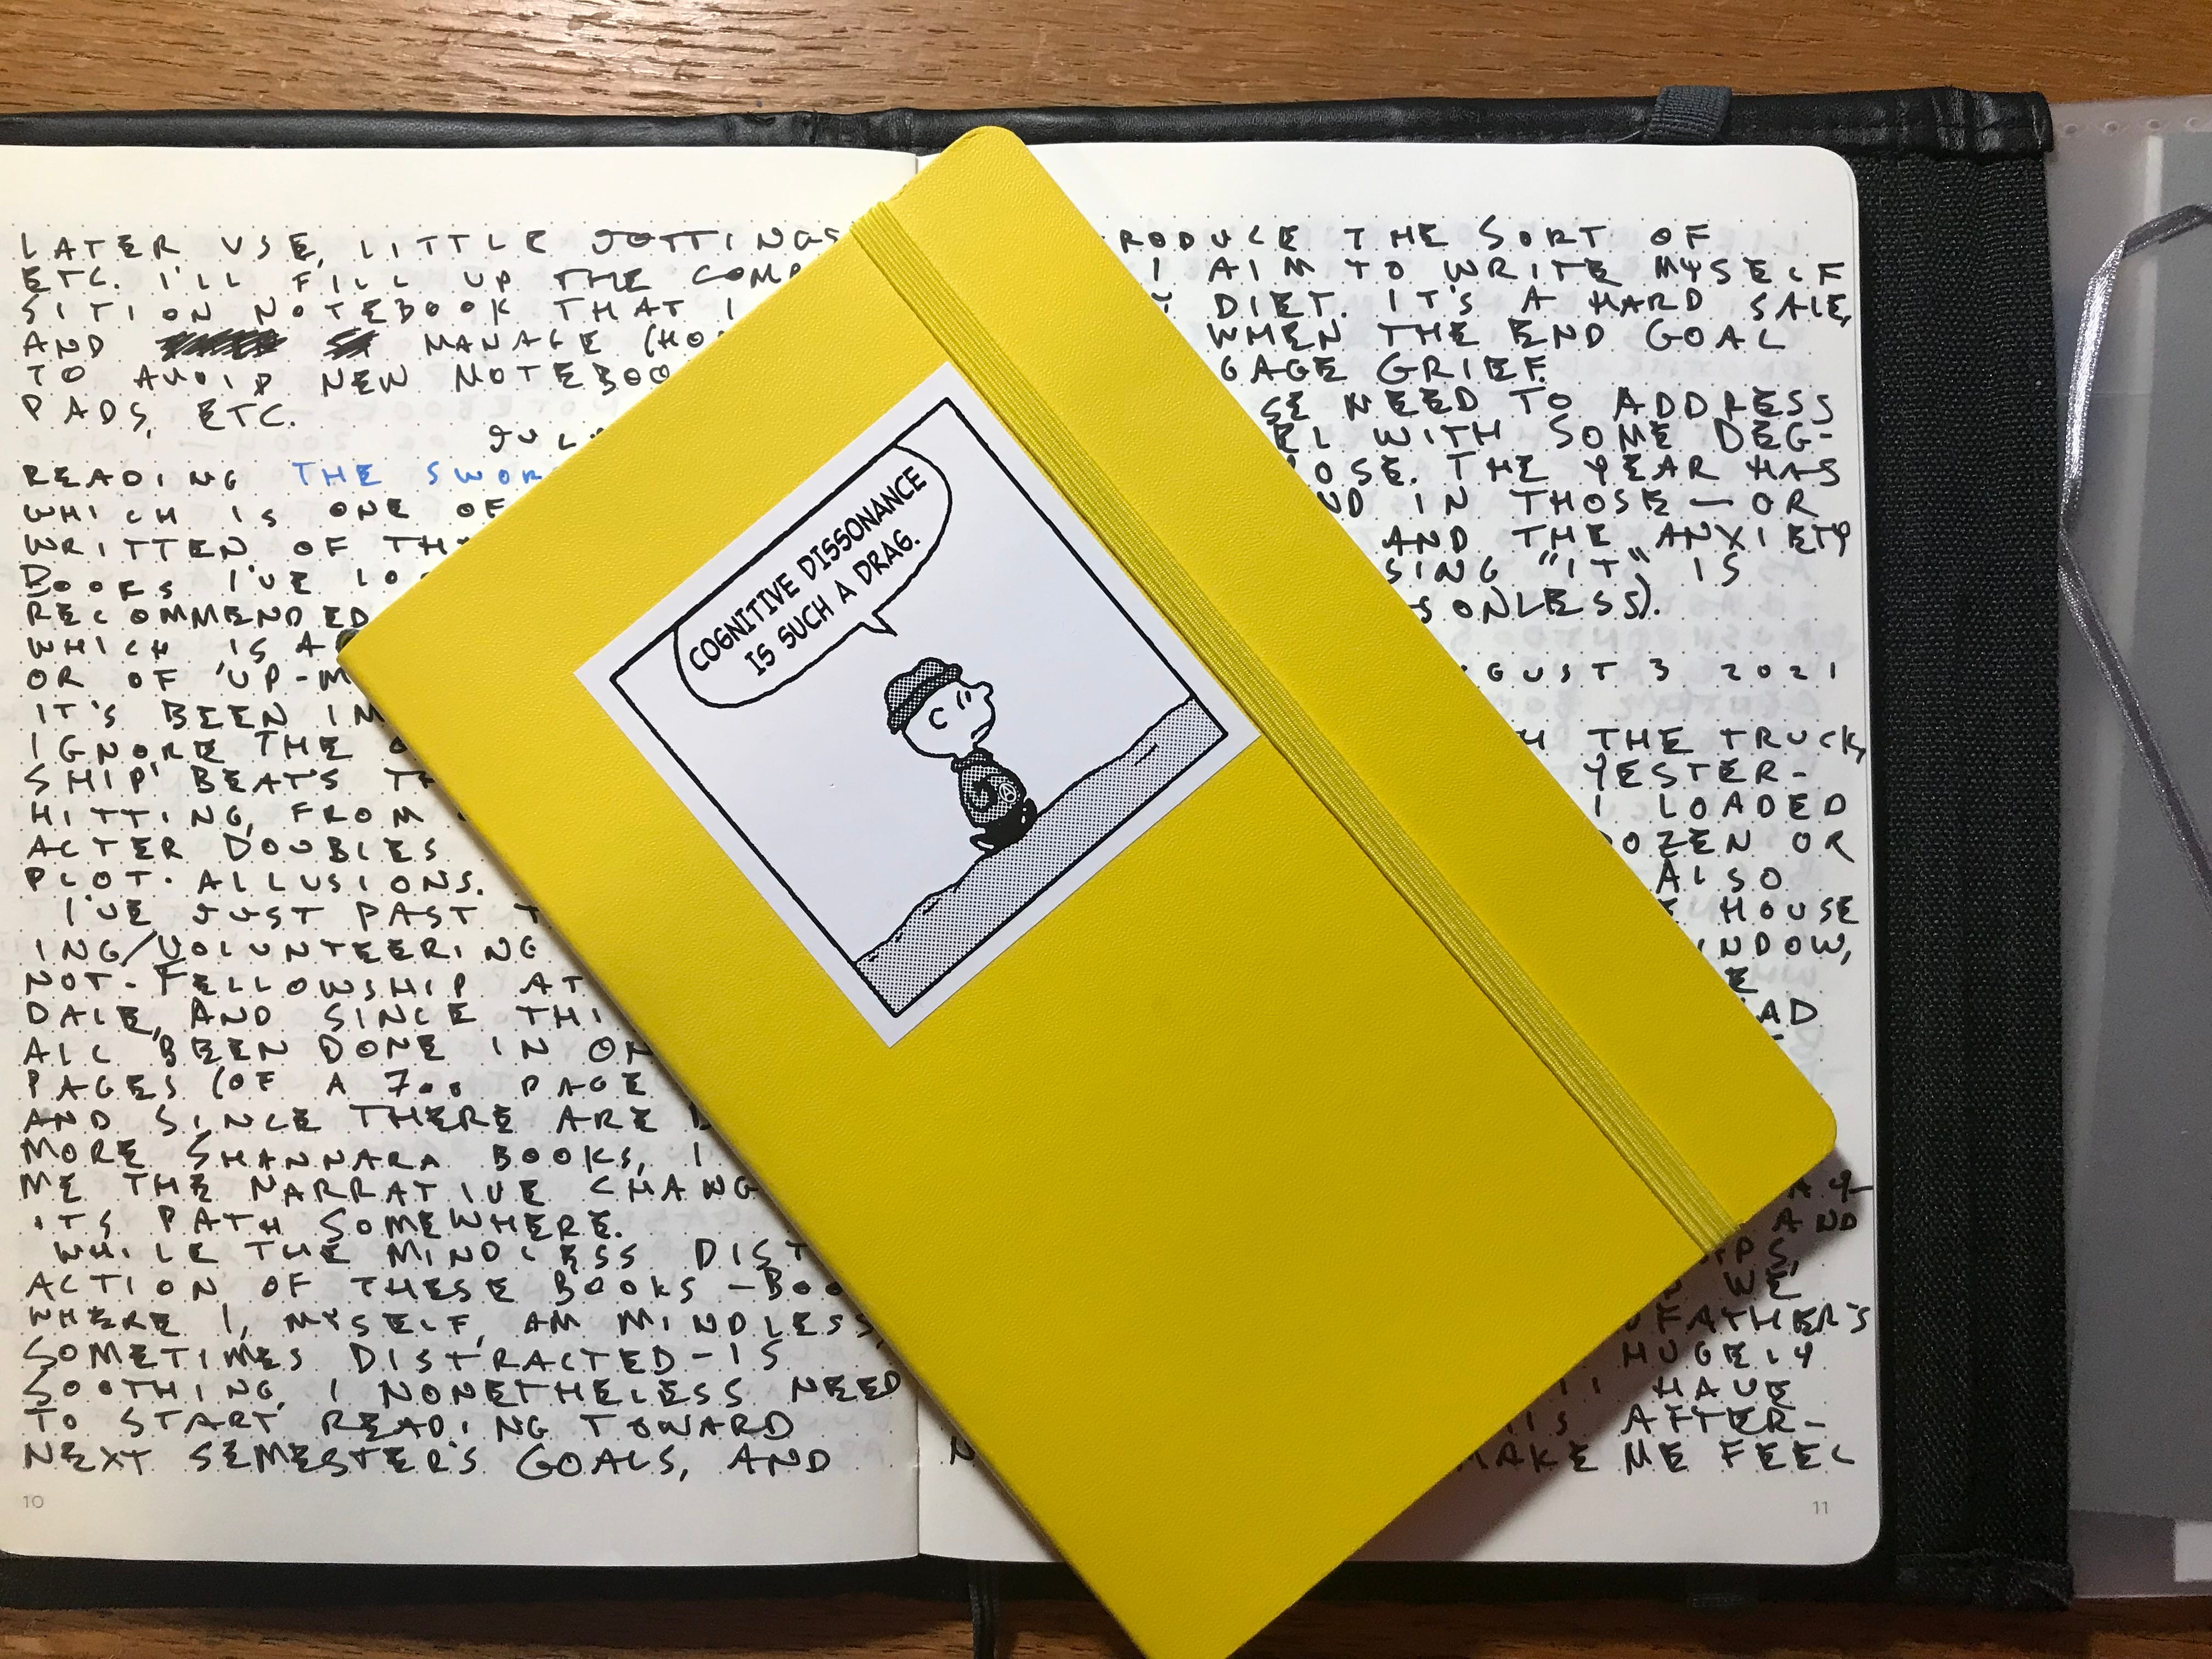 LATER USE, LITTLE JOTTINGS
ETC. I'LL FILL UP THE COMP
SITION NOTEBOOK THAT I
AND MANAGE (HO
TO AVOID NEW NOTEBOO
PADS, ETC.
JUL
READING THE SWOR
WHICH IS ONE OF
WRITTEN OF TH
BOOKS I'VE LO
RECOMMENDED
WHICH IS A
OR OF 'UP-M
IT'S BEEN IM
IGNORE THE
SHIP' BEATS TH
HITTING, FROM
ACTER DOUBLES
PLOT. ALLUSIONS.
I'VE JUST PAST T
ING/VOLUNTEERING
NOT-FELLOWSHIP AT
DALE, AND SINCE THI
ALL BEEN DONE IN ON
PAGES (OF A 700 PAGE
AND SINCE THERE ARE
MORE SHANNARA BOOKS, I
ME THE NARRATIVE CHANG
ITS PATH SOMEWHERE.
WHILE THE MINDLESS DIST
ACTION OF THESE BOOKS - BOO
WHERE I, MYSELF, AM MINDLESS,
SOMETIMES DISTRACTED - IS
SOOTHING, I NONETHELESS NEED
TO START READING TOWARD
NEXT SEMESTER'S GOALS, AND
10
RODUCE THE SORT OF
I AIM TO WRITE MYSELF
Y DIET. IT'S A HARD SALE,
WHEN THE END GOAL
GAGE GRIEF.
SE NEED TO ADDRESS
EL WITH SOME DEG-
OSE. THE YEAR HAS
ND IN THOSE — OR
AND THE ANXIETY
SING "IT" IS
SONLESS).
GUST 3 2021
H THE TRUCK,
YESTER-
I LOADED
OZEN OR
ALSO
E HOUSE
INDOW,
E
AD
AY-
AND
PS,
WE
FATHER'S
HUGELY
I HAVE
IS AFTER-
MAKE ME FEEL
11
COGNITIVE DISSONANCE
IS SUCH A DRAG.